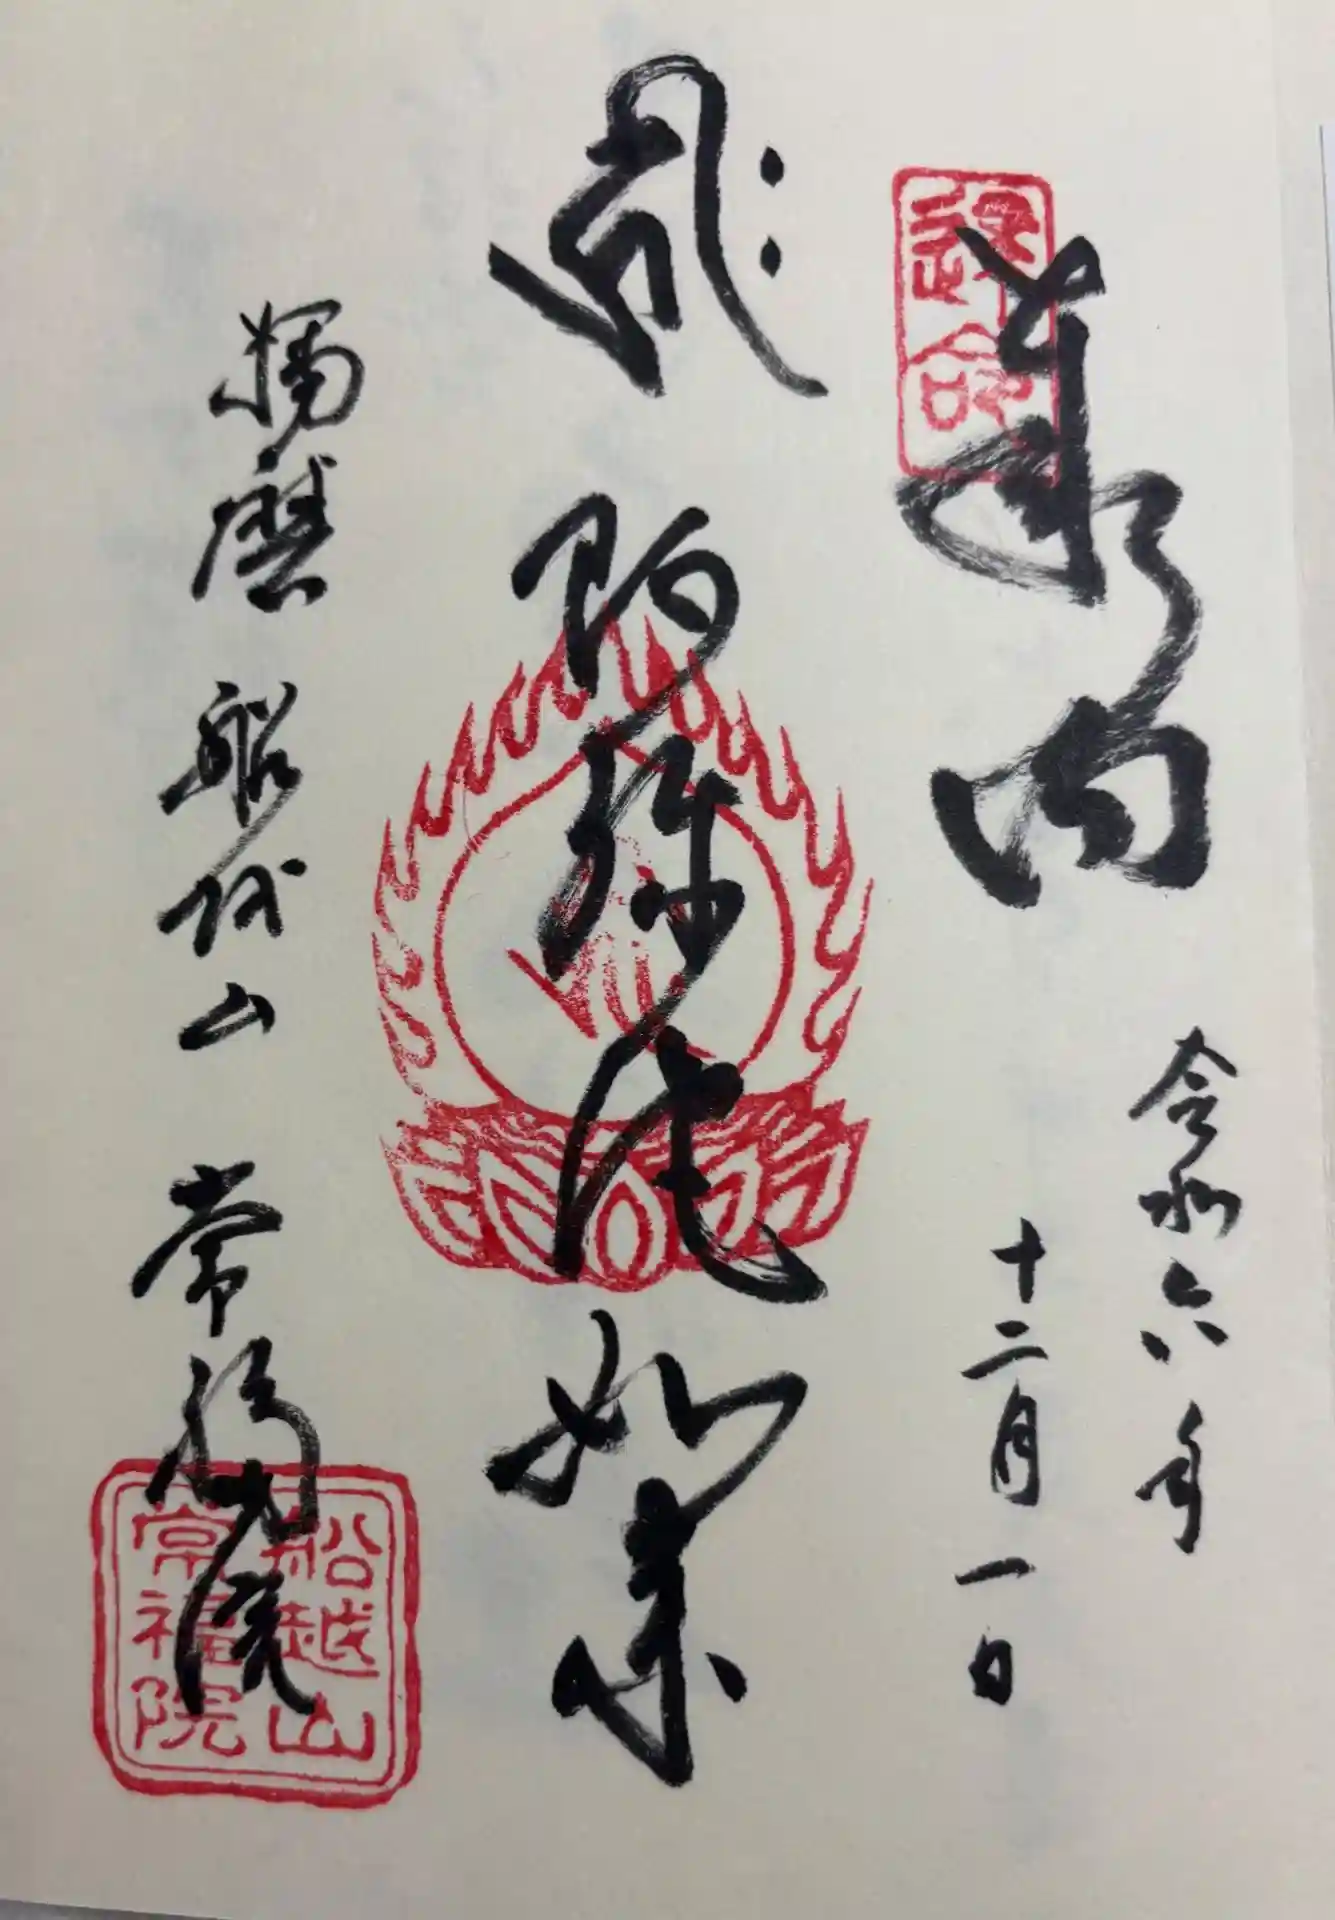 奉納
令和六年
十二月一日
阿弥陀如来
播磨 船越山 常福院
船越山
常福院